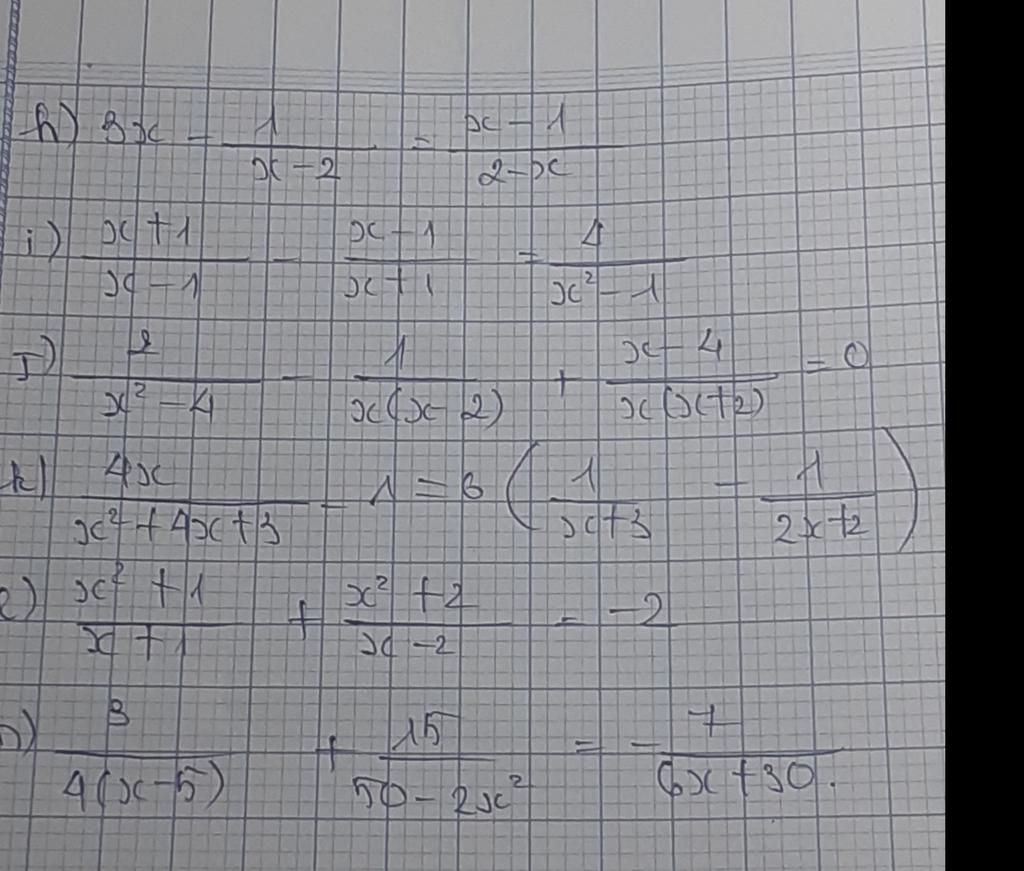 h) 3x - 1/(x-2) = (x-1)/(2-x)
i) (x+1)/(x-1) - (x-1)/(x+1) = 4/(x²-1)
J) 2/(x²-4) - 1/(x(x-2)) + (x-4)/(x(x+2)) = 0
k) 4x/(x²+4x+3) - 1 = 6(1/(x+3) - 1/(2x+2))
l) (x²+1)/(x+1) + (x²+2)/(x-2) = -2
) 3/(4(x-5)) + 15/(50-2x²) = -7/(6x+30).